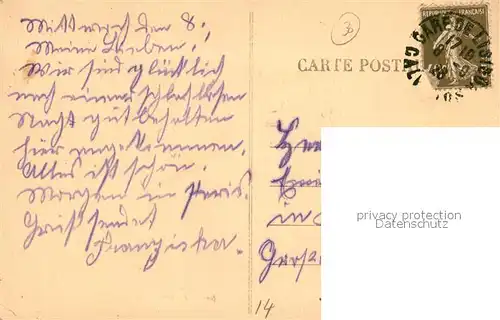 Mittwoch den 8.
Meine Lieben!
Wir sind glücklich
nach einer schlaflosen
Nacht gut behalten
hier angekommen.
Alles ist schön.
Morgen in Paris.
Gruß sendet
Franziska.
30
CARTE POSTALE
REPUBLIQUE FRANÇAISE
GARE DE
in
14
privacy protection
Datenschutz